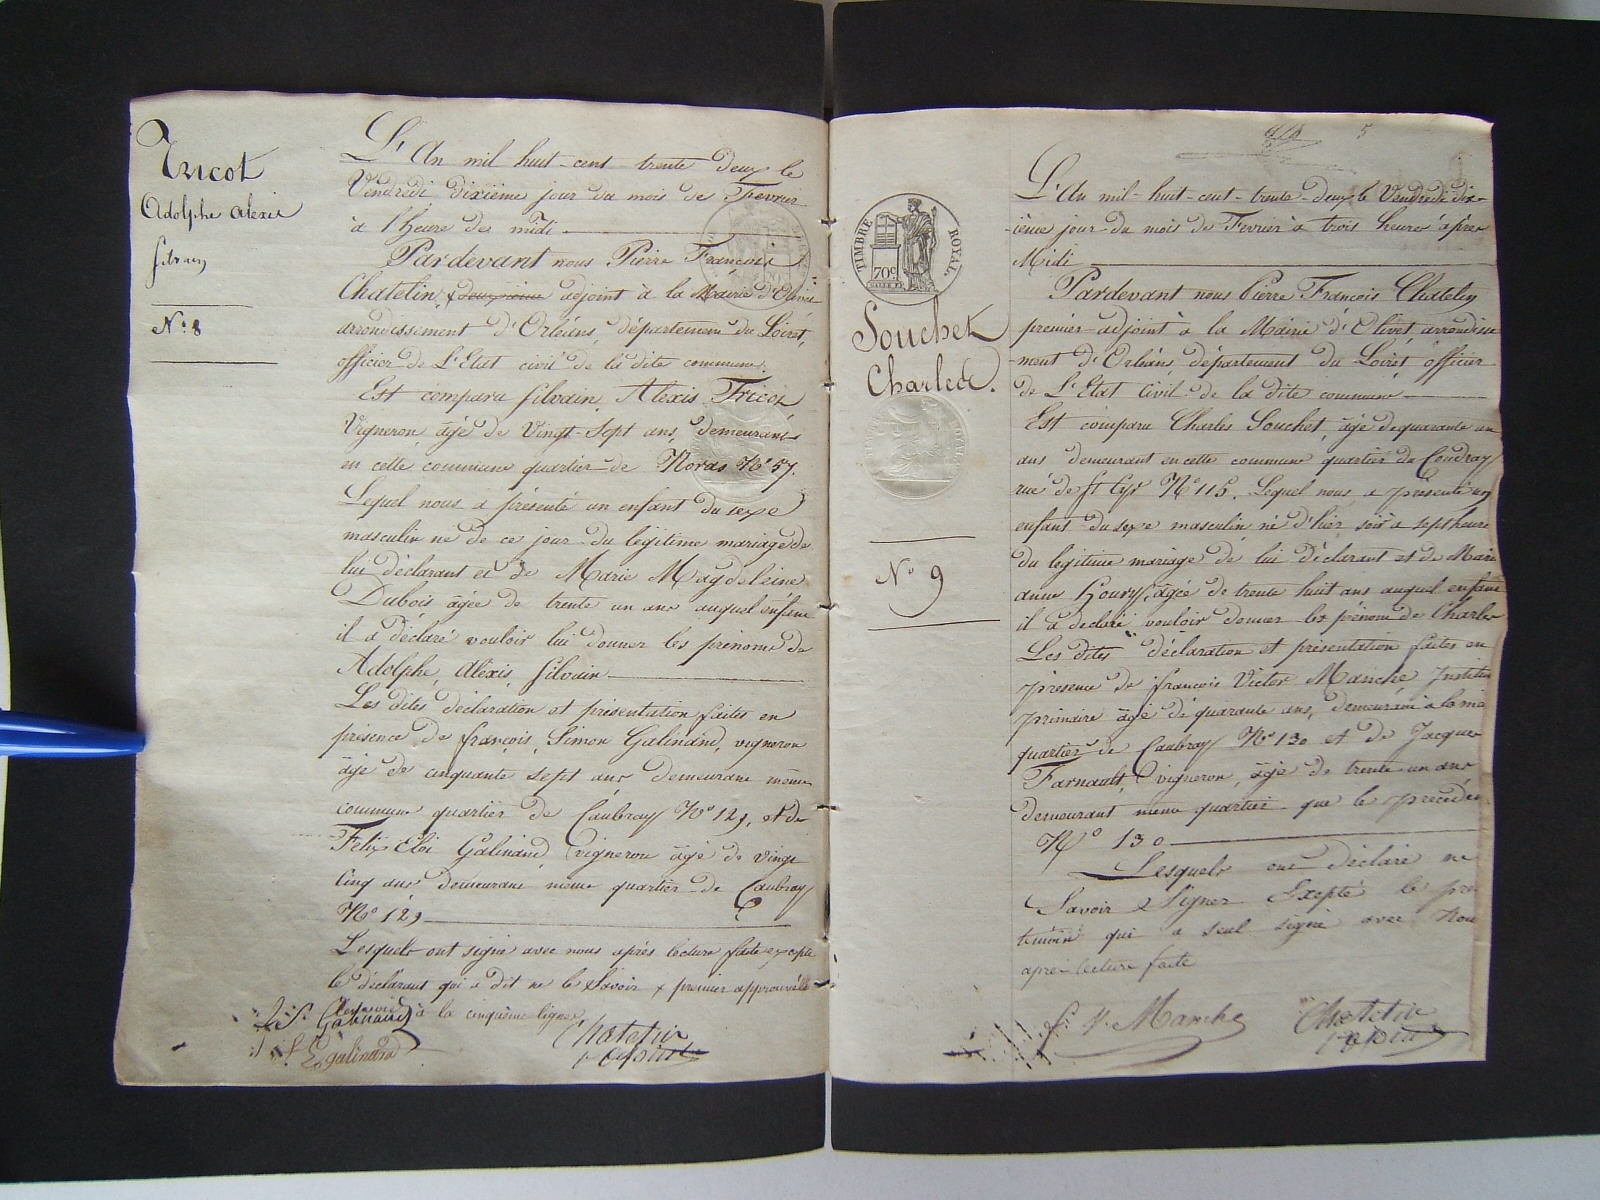 Tricot
Adolphe Alexis
Silvain
N.° 8
L'An mil huit-cent-trente Deux le
Vendredi, dixième jour du mois de Fevrier
à l'heure de midi
Pardevant nous Pierre François
Chatelin, x deuxième adjoint à la Mairie d'Olivet
arrondissement d'Orléans, département du Loiret,
officier de L'Etat civil de la dite commune.
Est comparu Silvain, Alexis Tricot
Vigneron, âgé de Vingt-Sept ans, demeurant
en cette commune quartier de Noras N.° 57.
Lequel nous a présenté un enfant du sexe
masculin né de ce jour du légitime mariage de
lui déclarant et de Marie Magdeleine
Dubois âgée de trente un ans auquel enfant
il a déclaré vouloir lui donner les prénoms de
Adolphe, Alexis, Silvain
Les dites déclaration et présentation faites en
présence de françois, Simon Galinand, vigneron
âgé de cinquante sept ans demeurant même
commune quartier de Caubray N.° 129, et de
Felix Eloi Galinand, vigneron âgé de vingt
Cinq ans demeurant même quartier de Caubray
N.° 129
Lesquels ont signé avec nous après lecture faite excepté
le déclarant qui a dit ne le Savoir x premier approuvé
à la cinquième ligne
Galinand
f. E. galinand
Chatelin
1er adjoint
5
TIMBRE ROYAL.
70c
Souchet
Charles.
N.° 9
L'An mil-huit-cent-trente-deux le Vendredi dix-
ième jour du mois de Fevrier à trois heures après
Midi
Pardevant nous Pierre François Chatelin
premier adjoint à la Mairie d'Olivet arrondisse
ment d'Orléans, département du Loiret officier
de L'Etat Civil de la dite commune
Est comparu Charles Souchet, âgé de quarante un
ans demeurant en cette commune quartier du Coudray
rue de St Cyr N.° 115. Lequel nous a présenté un
enfant du sexe masculin né d'hier soir à sept heures
du légitime mariage de lui déclarant et de Marie
anne Houry, âgée de trente huit ans auquel enfant
il a déclaré vouloir donner les prénoms de Charles
Les dites déclaration et présentation faites en
présence de françois Victor Manche Institut
primaire âgé de quarante ans, demeurant à la
quartier de Caubray N.° 130 et de Jacques
Farnault, vigneron, âgé de trente un ans
demeurant même quartier que le précédent
N.° 130
Lesquels ont déclaré ne
Savoir Signer Excepté le pre
témoin qui a seul signé avec Nous
après lecture faite
f. V. Manche
Chatelin
1er adjoint